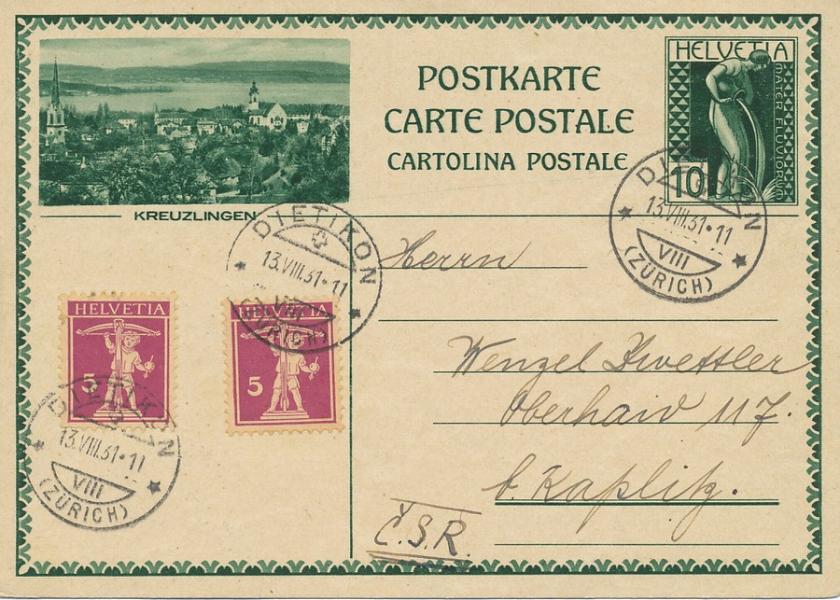 POSTKARTE
CARTE POSTALE
CARTOLINA POSTALE
HELVETIA
MATER FLUVIORUM
10
KREUZLINGEN
DIETIKON
13.VIII.31·11
VIII
(ZÜRICH)
DIETIKON
13.VIII.31·11
VIII
(ZÜRICH)
HELVETIA
5
HELVETIA
5
DIETIKON
13.VIII.31·11
VIII
(ZÜRICH)
Herrn
Wenzel
Oberhaid 117.
b. Kaplitz.
Č.S.R.